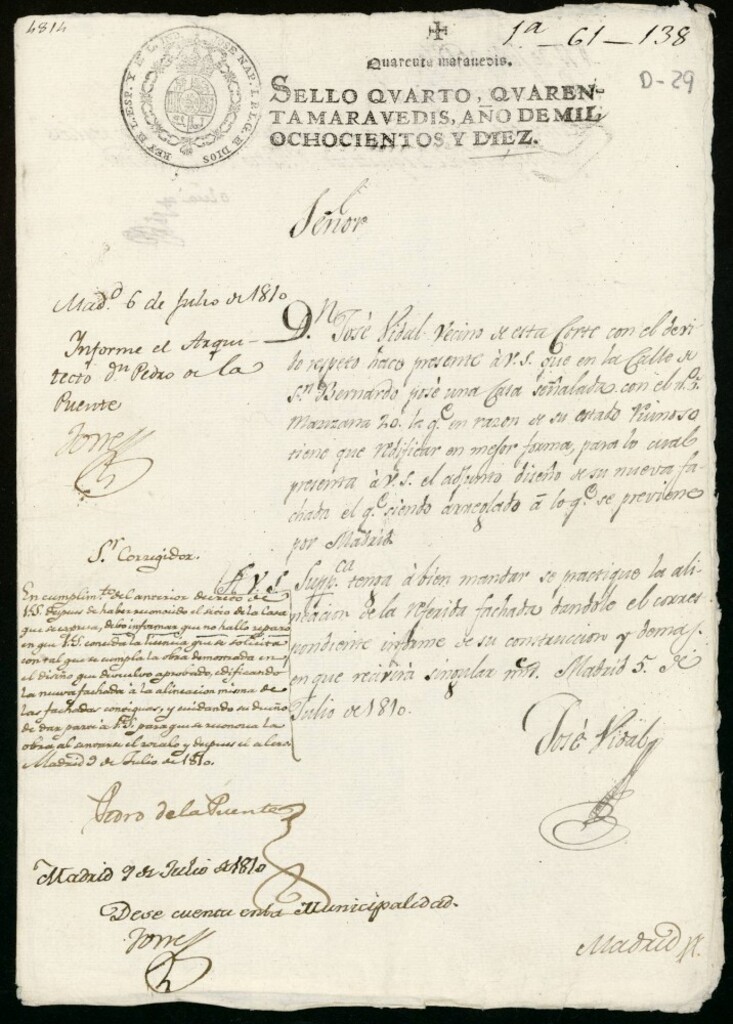 4814
1ª 61-138
D-29
Quarenta maravedis.
SELLO QVARTO, QVAREN-
TA MARAVEDIS, AÑO DE MIL
OCHOCIENTOS Y DIEZ.
Señor
Mad.d 6 de Julio de 1810
Informe el Arqui-
tecto dn Pedro de la
Puente
Torres
D.n José Vidal Vecino de esta Corte con el devi-
do respeto hace presente à V.S. que en la Calle de
S.n Bernardo posé una Casa señalada con el n.º
Manzana 20. la q.e en razon de su estado ruinoso
tiene que redificar en mejor forma, para lo cual
presenta à V.S. el adjunto diseño de su nueva fa-
chada el q.e siendo arreglado à lo q.e se previene
por Madrid
A V.S.
Sup.ca tenga à bien mandar se practique la ali-
neacion de la referida fachada dandole el corres-
pondiente informe de su construccion y demas
en que recivirá singular mrd. Madrid 5. de
Julio de 1810.
José Vidal
S.r Corregidor.
En cumplim.to del anterior decreto de
V.S. despues de haber reconocido el sitio de la Casa
que se expresa, debo informar que no hallo reparo
en que V.S. conceda la licencia que se solicita
con tal que se cumpla la obra demostrada en
el diseño que devuelvo aprobado, edificando
la nueva fachada à la alineacion misma de
las fachadas contiguas, y cuidando su dueño
de dar parte à V.S. para que se reconozca la
obra, al sentarse el zocalo y despues
Madrid 9 de Julio de 1810.
Pedro de la Puente
Madrid 9 de Julio de 1810
Dese cuenta en la Municipalidad.
Torres
Madrid